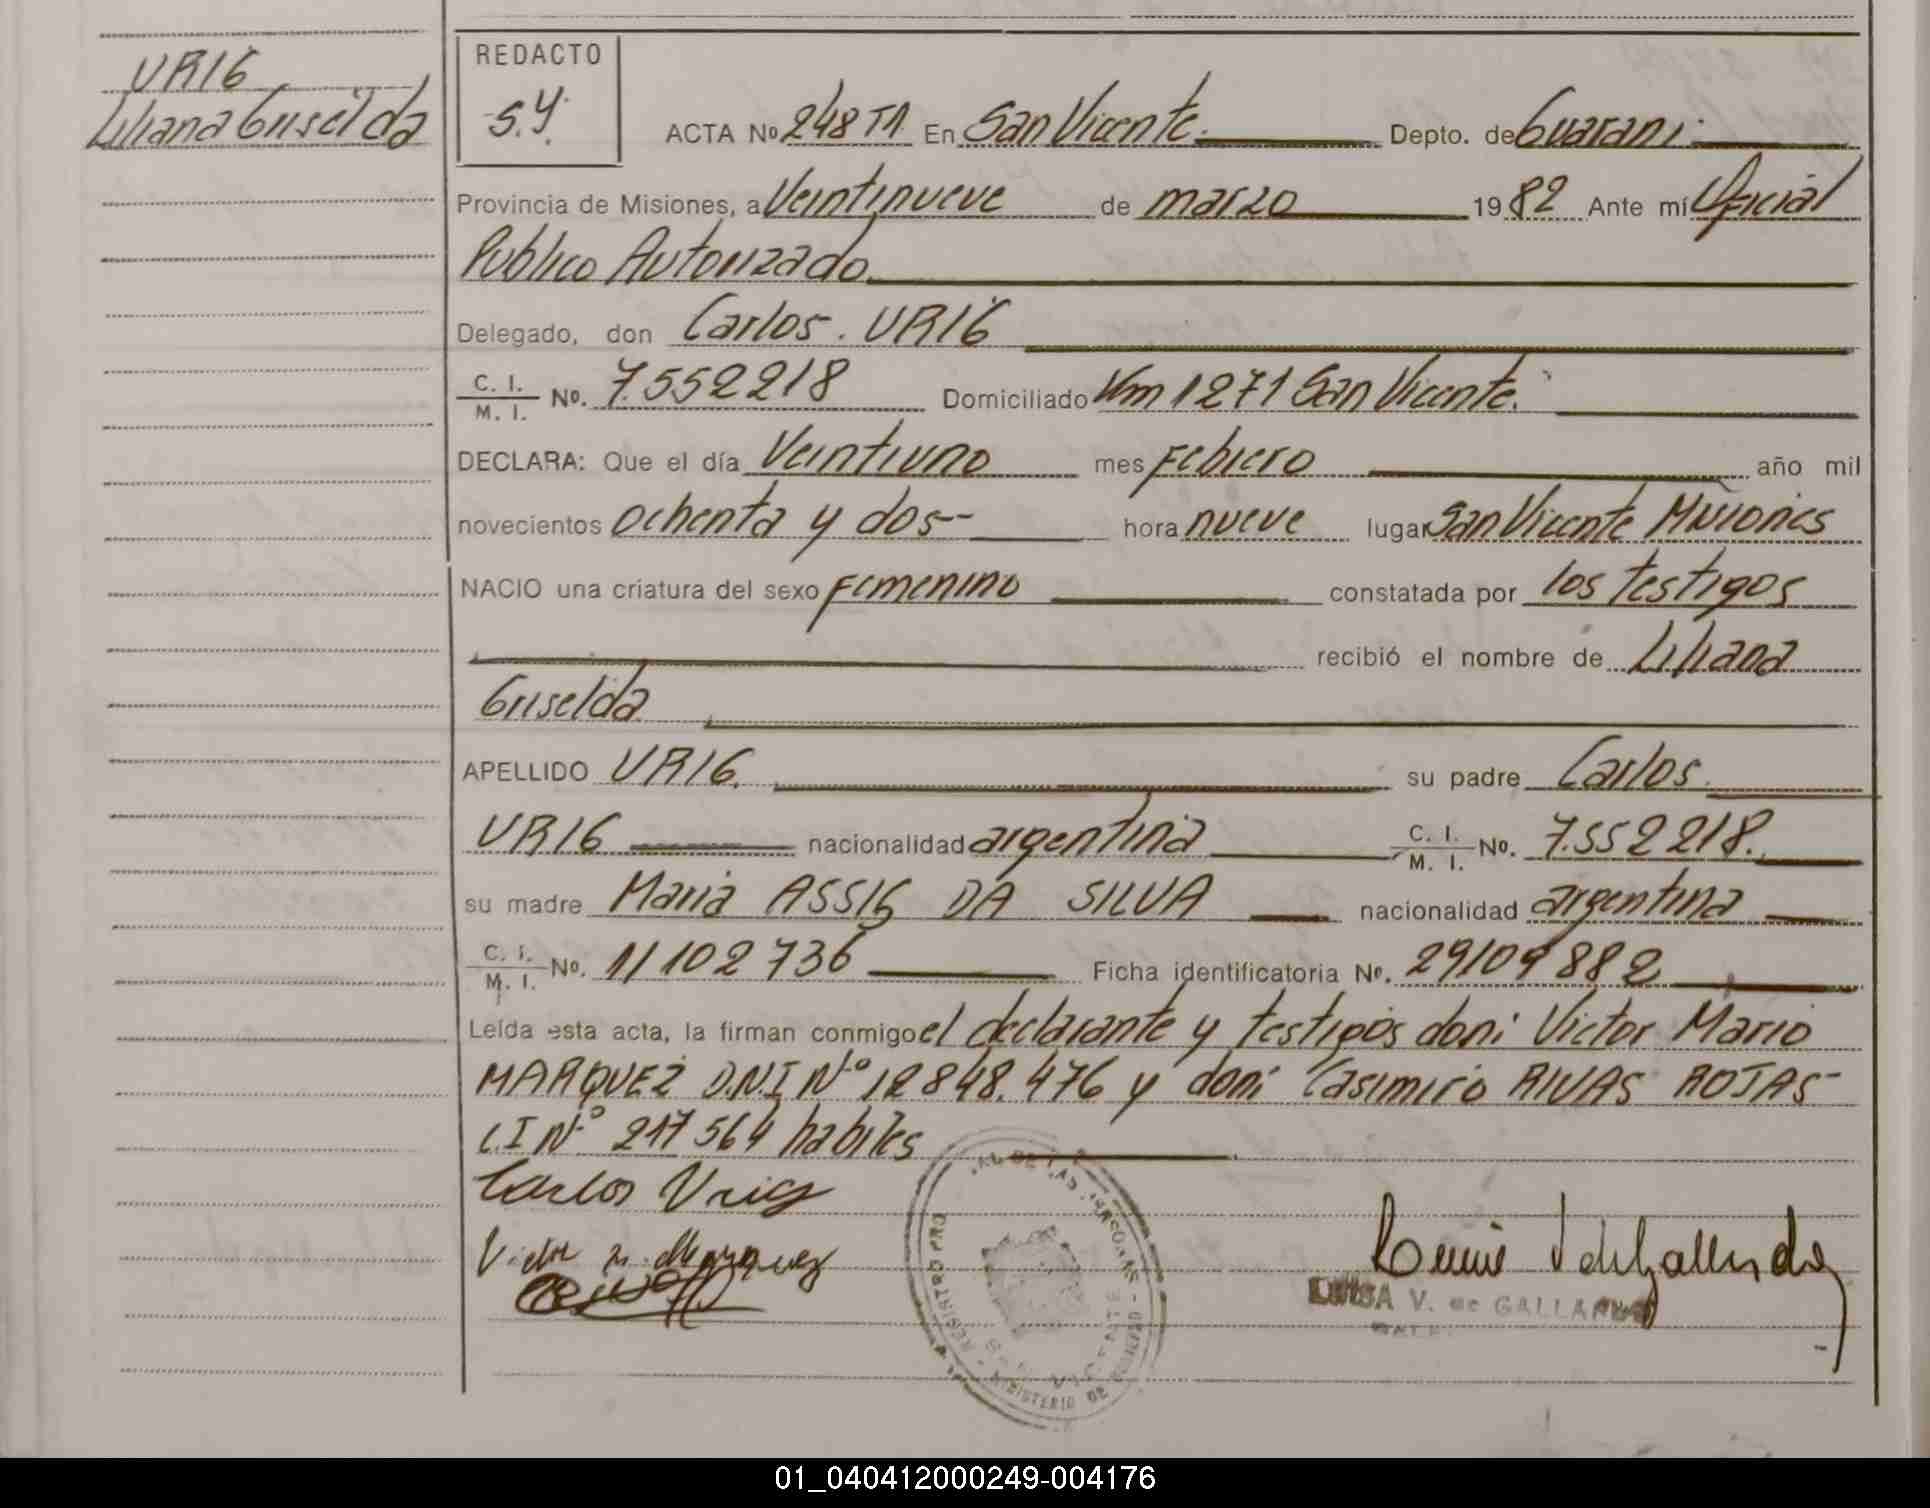 URIG
Liliana Griselda
REDACTO
S.Y.
ACTA Nº 248 T1 En San Vicente. Depto. de Guarani
Provincia de Misiones, a Veintinueve de marzo 1982 Ante mí Oficial
Publico Autorizado
Delegado, don Carlos. URIG
C. I. / M. I. Nº. 7.552218 Domiciliado Km 1271 San Vicente.
DECLARA: Que el día Veintiuno mes Febrero año mil
novecientos ochenta y dos- hora nueve lugar San Vicente Misiones
NACIO una criatura del sexo Femenino constatada por los testigos
recibió el nombre de Liliana
Griselda
APELLIDO URIG. su padre Carlos.
URIG nacionalidad argentina C. I. / M. I. Nº. 7.552218.
su madre Maria ASSIS DA SILVA nacionalidad argentina
C. I. / M. I. Nº. 11102736 Ficha identificatoria Nº. 29109882
Leída esta acta, la firman conmigo el declarante y testigos don: Victor Mario
MARQUEZ D.N.I Nº 12848.476 y don: Casimiro RIVAS ROJAS-
C.I Nº 217564 habiles
Carlos Urig
Victor M. Marquez
LUISA V. de GALLARDO
DE LAS PERSONAS - MINISTERIO DE GOBIERNO - REGISTRO PROV
SAN VICENTE
01_040412000249-004176